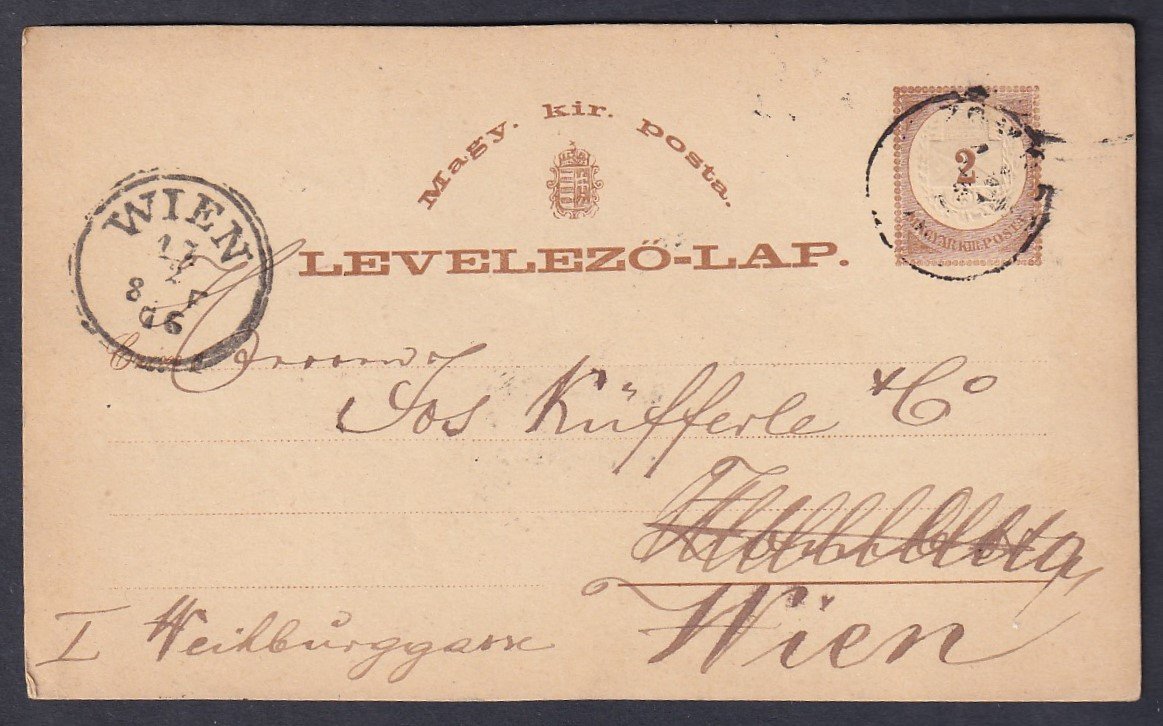 Magy. kir. posta.
LEVELEZŐ-LAP.
2
MAGYAR KIR. POSTA
WIEN
17
2
8 F
76
Jos Küfferle & Co
Wien
I Weihburggasse